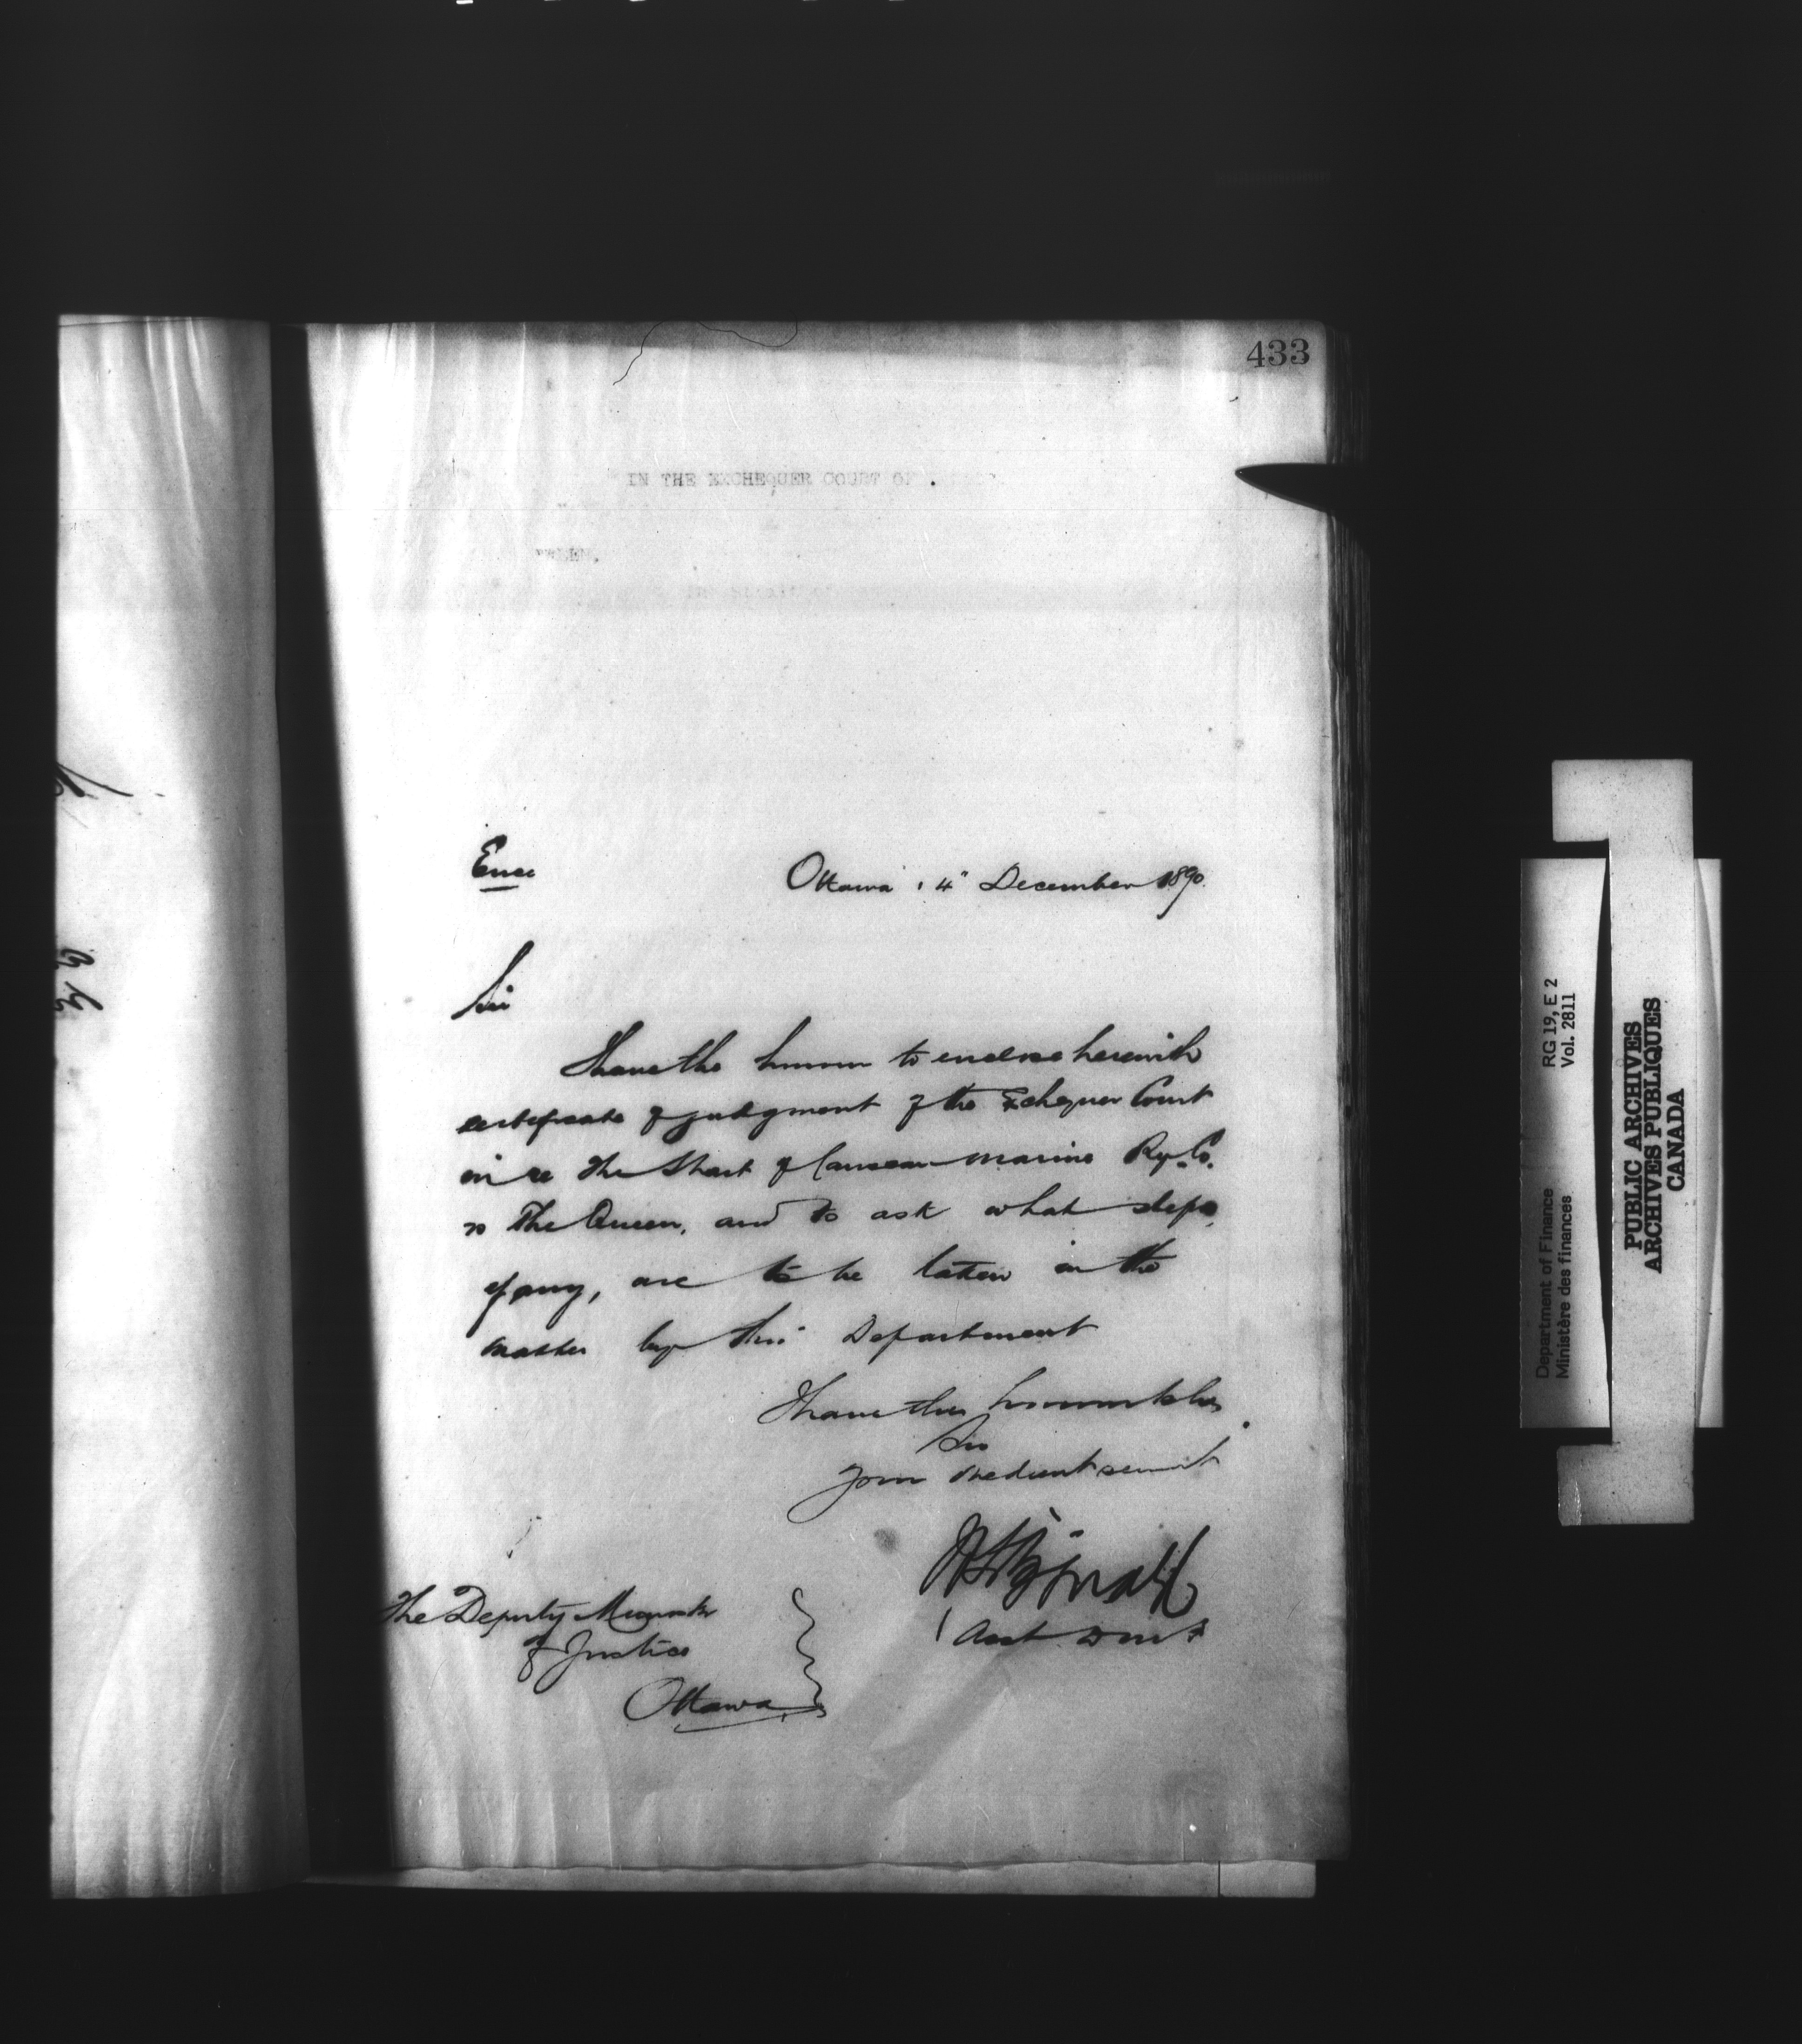 433
IN THE EXCHEQUER COURT OF
Encc
Ottawa, 4" December 1890.
Sir
I have the honour to enclose herewith
certificate of judgment of the Exchequer Court
in re the Strait of Canseau Marine Ry. Co.
vs The Queen, and to ask what steps,
if any, are to be taken in the
matter by this Department
I have the honour to be,
Sir
Your obedient servant
Asst. D m F
The Deputy Minister
of Justice
Ottawa
Department of Finance RG 19, E 2
Ministère des finances Vol. 2811
PUBLIC ARCHIVES
ARCHIVES PUBLIQUES
CANADA